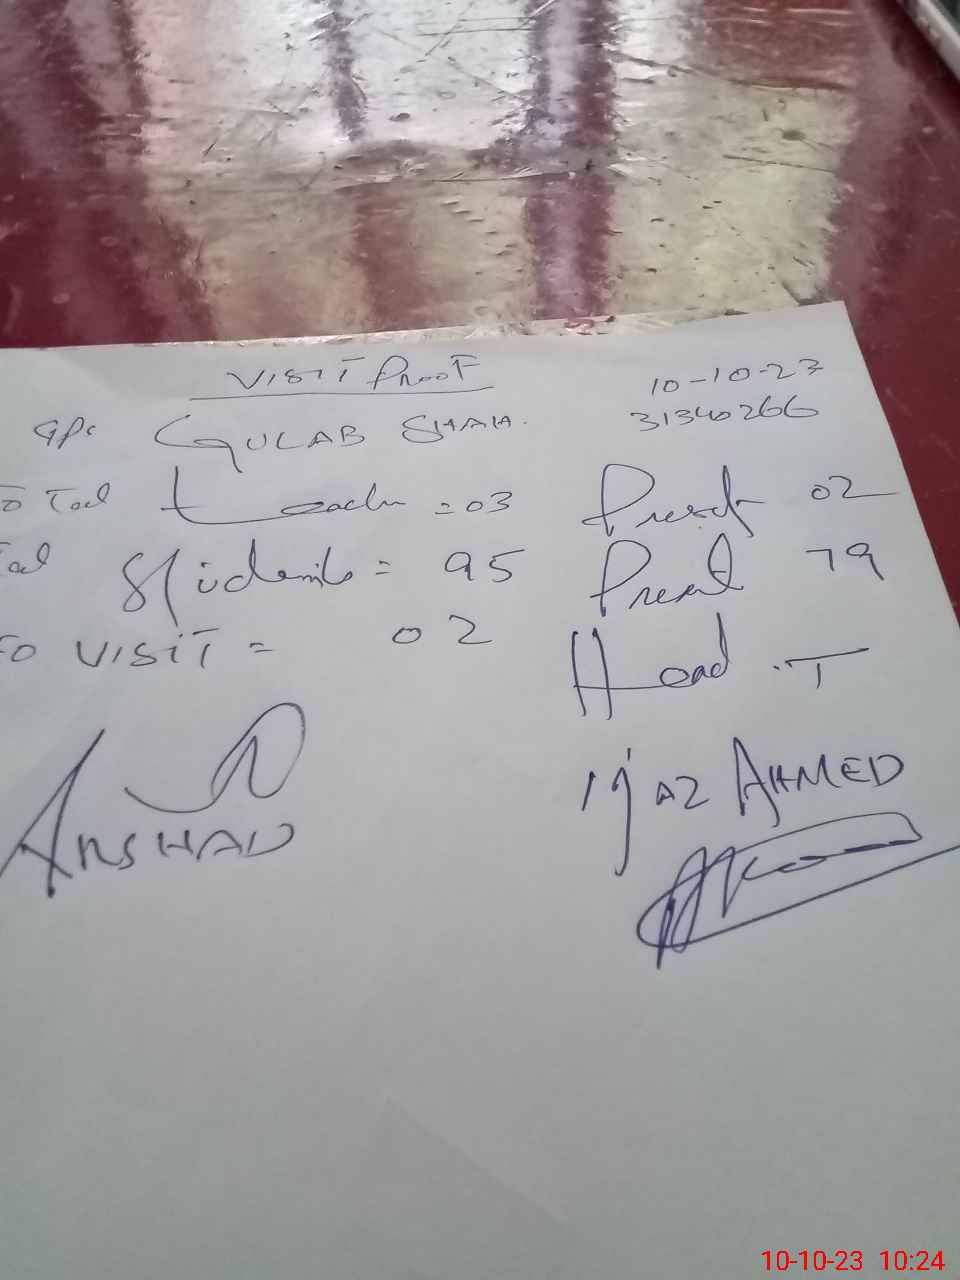 VISIT PROOF
10-10-23
GPS GULAB SHAH.
31340266
Total teach = 03 Present 02
Students = 95 Present 79
VISIT = 02 Head .T
ARSHAD
Ijaz AHMED
10-10-23 10:24